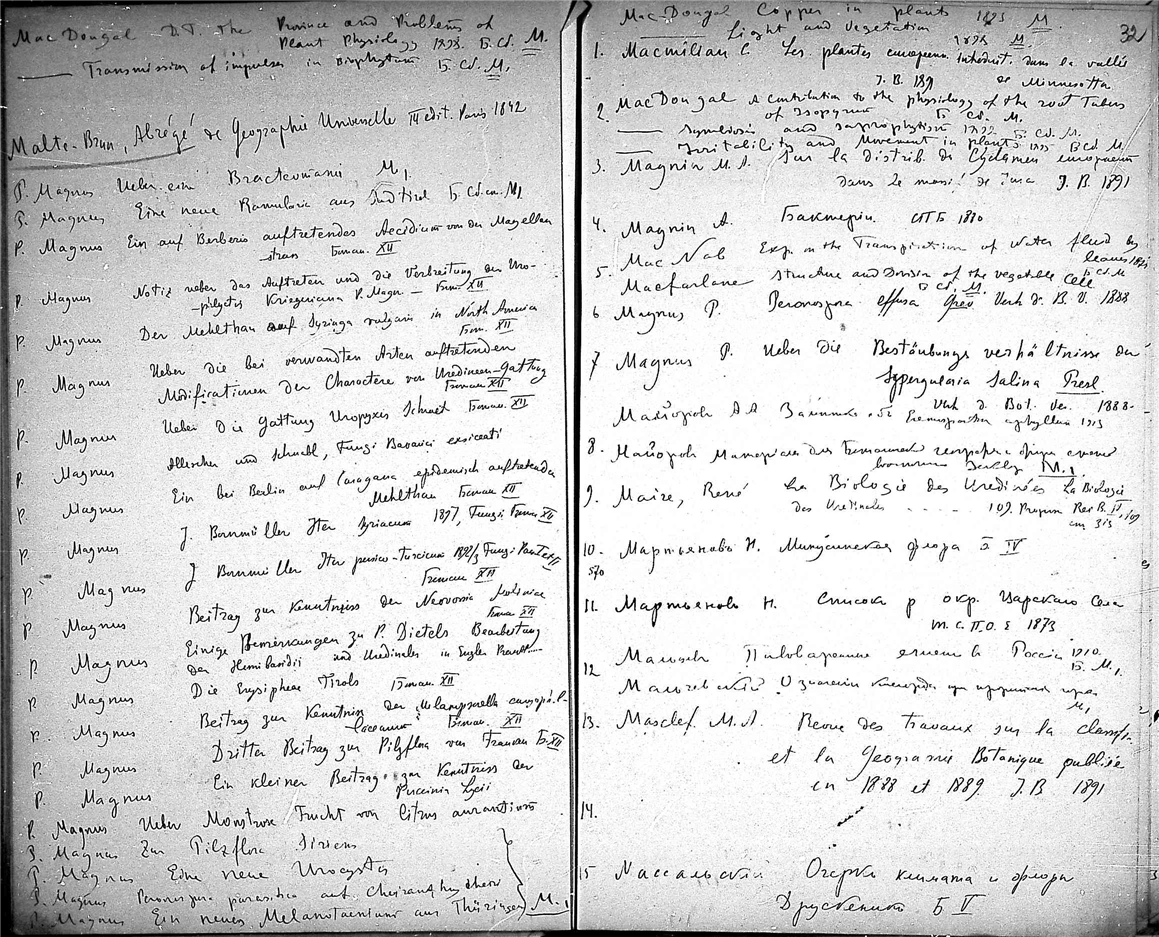 Mac Dougal D.T. the Province and Problems of
Plant Physiology 1898. Б. Cd. M.
—— Transmission of impulses in Biophytum Б. Cd. M.
Malte-Brun, Abrégé de Geographie Universelle III edit. Paris 1842
P. Magnus Ueber ein M.
P. Magnus Eine neue Ramularia aus Südtirol Б. M.
P. Magnus Ein auf Berberis auftretendes Aecidium von der Magellan
strass XII
P. Magnus Notiz ueber das Auftreten und die Verbreitung der Uro-
Kriegeriana P. Magn. — XII
P. Magnus Der Mehlthau auf Syringa vulgaris in North America
XII
P. Magnus Ueber die bei verwandten Arten auftretenden
Modificationen der Charactere von Uredineen-Gattung
XII
P. Magnus Ueber die Gattung Uropyxis Schroet XII
Magnus Allescher und Schnabl, Fungi Bavarici exsiccati
P. Magnus Ein bei Berlin auf Caragana epidemisch auftretender
Mehlthau XII
P. Magnus J. Bornmüller Iter Syriacum 1897, Fungi XII
P. Magnus J Bornmüller Iter persico-turcicum 1892/3 Fungi XII
P. Magnus Beitrag zur Kenntniss der Neovossia Moliniae
XII
P. Magnus Einige Bemerkungen zu P. Dietels Bearbeitung
der Hemibasidii und Uredinales in Engler Prantl
P. Magnus Die Erysipheae Tirols XII
P. Magnus Beitrag zur Kenntniss der Melampsorella
XII
P. Magnus Dritter Beitrag zur Pilzflora von Franken Б. XII
P. Magnus Ein kleiner Beitrag zur Kenntniss der
Puccinia Lycii
P. Magnus Ueber Monströse Frucht von Citrus aurantium
P. Magnus Zur Pilzflora Syriens
P. Magnus Eine neue Urocystis
P. Magnus Peronospora parasitica auf Cheiranthus Cheiri
P. Magnus Ein neues Melanotaenium aus Thüringen M.
32
Mac Dougal Copper in plants M.
—— Light and Vegetation M.
1. Macmillan C. Les plantes dans la vallée
J. B. 1891 de Minnesotta
2. MacDougal A contribution to the physiology of the root Tubers
of Isopyrum Б. Cd. M.
—— Symbiosis and saprophytism Б. Cd. M.
—— Irritability and Movement in plants Б Cd. M.
3. Magnin M. A. Sur la distrib. de Cyclamen europaeum
dans le massif de Jura J. B. 1891
4. Magnin A. Бактеріи. СПБ 1880
5. Mac Nab Exp. on the Transpiration of water fluid by
leaves
Macfarlane Structure and Division of the vegetable Cell
Б Cd. M.
6 Magnus P. Peronospora effusa Grev Verh d. B. V. 1888
7 Magnus P. Ueber die Bestäubungsverhältnisse der
Spergularia Salina Presl.
Verh d. Bot. Ver. 1888-
Майоровъ Замѣтка объ Eremosparton aphyllum 1913
8. Майоровъ Матеріалы для Ботанической географіи
M.
9. Maire, René La Biologie des Uredinées La Biologie
des Uredinales . . . . . 109. IV
10. Мартьяновъ Н. Минусинская флора Б. IV
570
11. Мартьяновъ Н. Списокъ р. окр. Царскаго Села
Т. С. П. О. Е 1873
12 Пивовареніе въ Россіи 1910.
Б. M.
Мальчевскій О значеніи кислорода при
M.
13. Masclef. M. A. Revue des travaux sur la classif.
et la Geographie Botanique publiée
en 1888 et 1889 J. B 1891
14.
15 Массальскій Очеркъ климата и флоры
Друскеникъ Б V